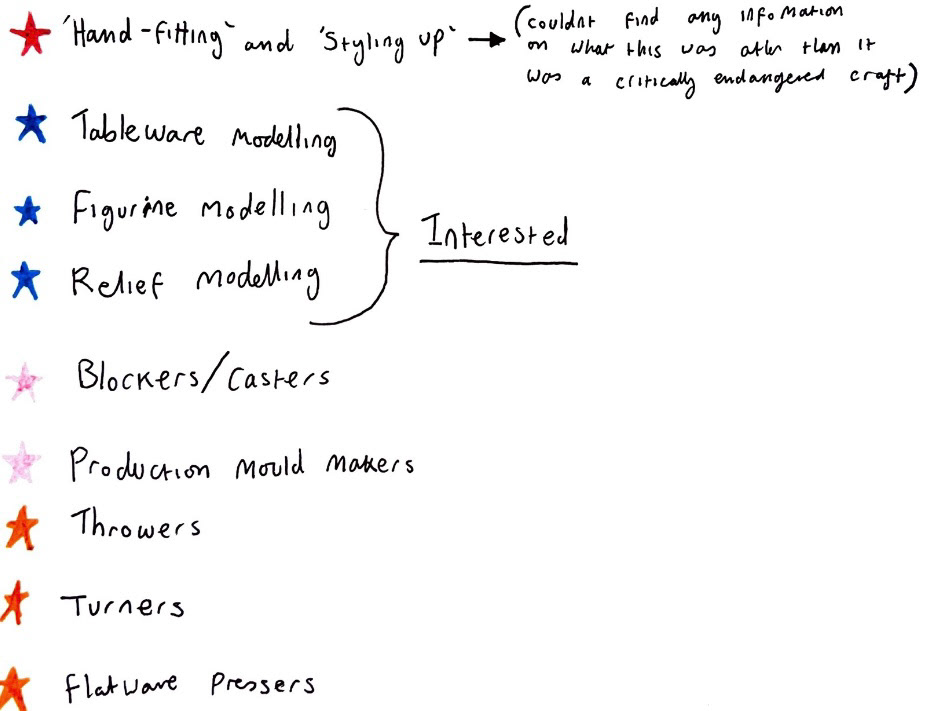 'Hand-fitting' and 'Styling up' → (couldnt find any infomation
on what this was other than it
was a critically endangered craft)
Tableware modelling
Figurine modelling
Interested
Relief modelling
Blockers/Casters
Production mould makers
Throwers
Turners
flatware pressers